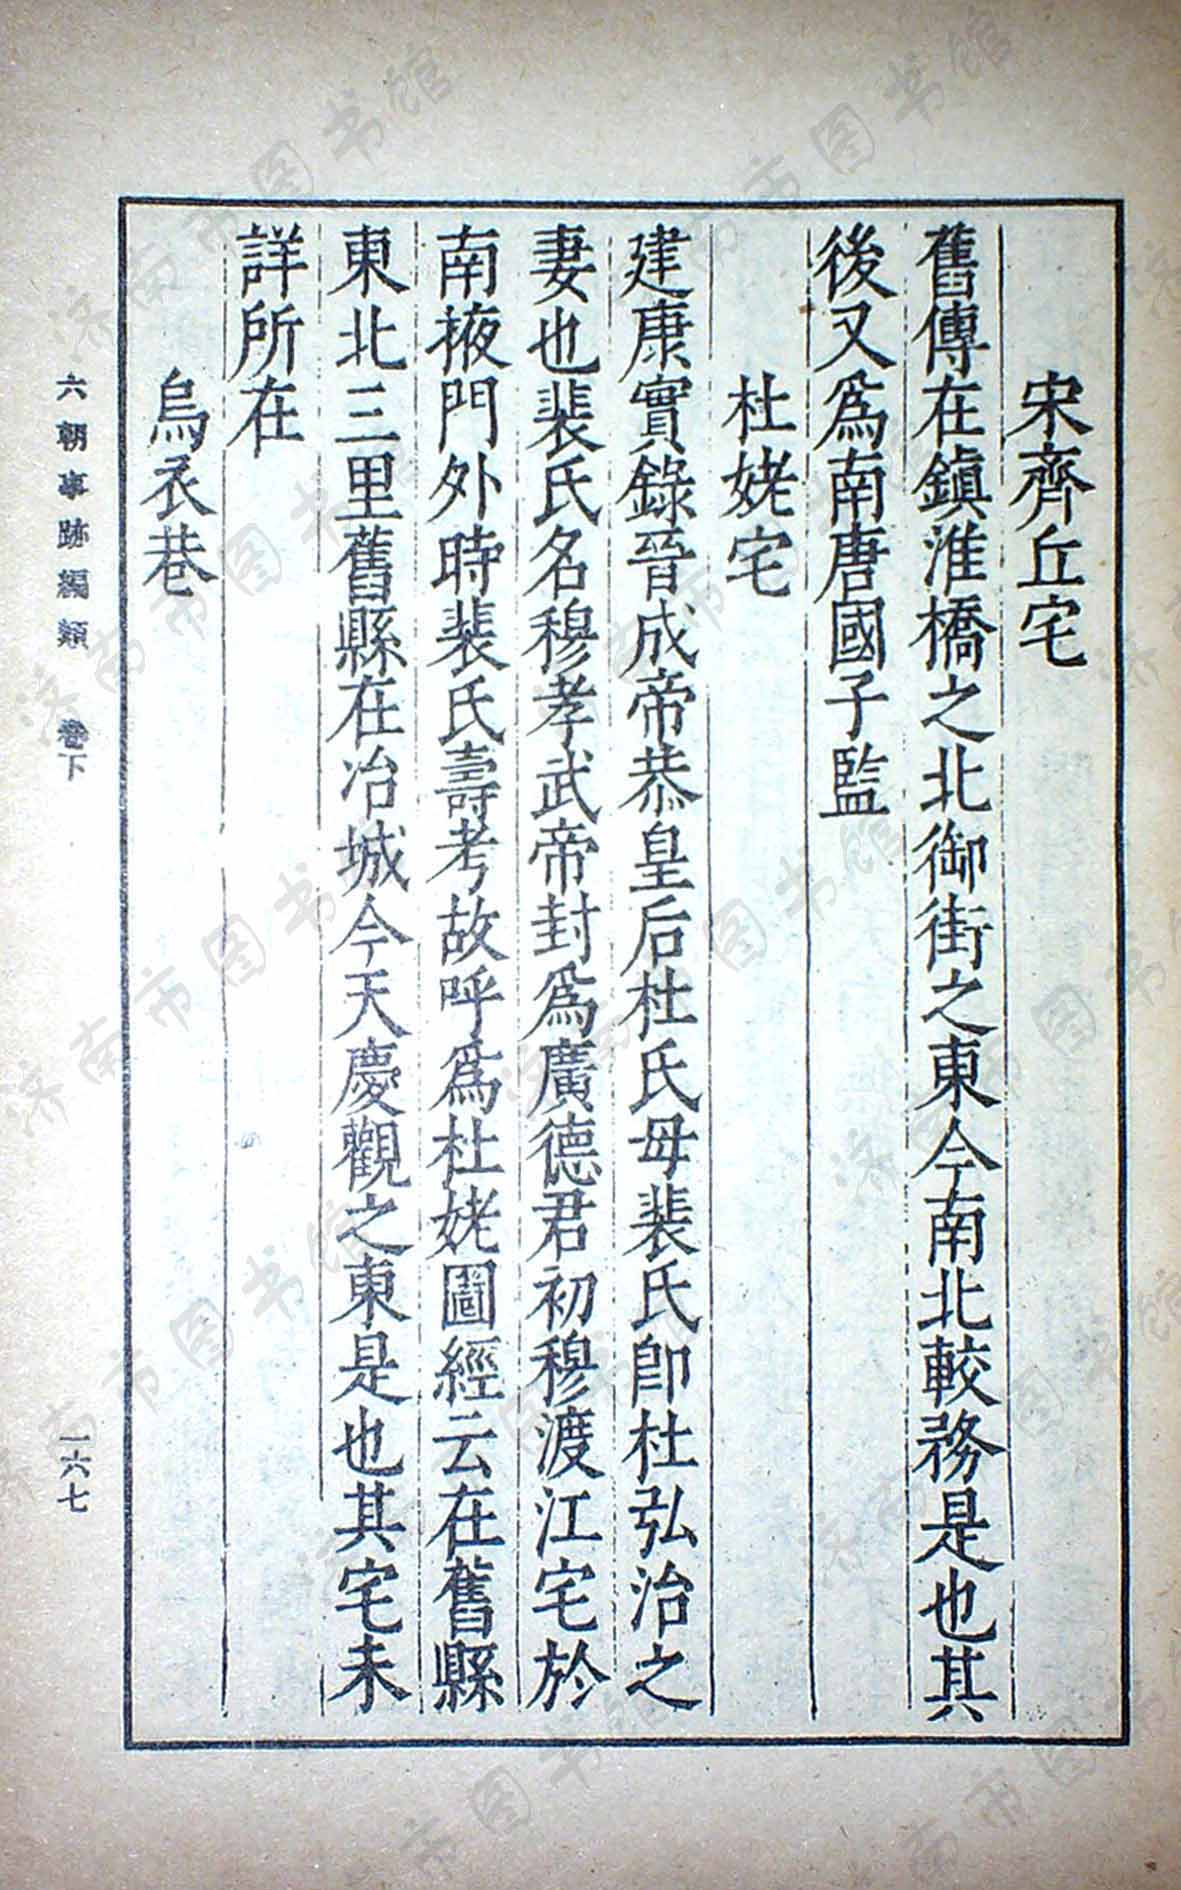 宋齊丘宅
舊傳在鎮淮橋之北御街之東今南北較務是也其
後又爲南唐國子監
杜姥宅
建康實錄晉成帝恭皇后杜氏母裴氏卽杜弘治之
妻也裴氏名穆孝武帝封爲廣德君初穆渡江宅於
南掖門外時裴氏壽考故呼爲杜姥圖經云在舊縣
東北三里舊縣在冶城今天慶觀之東是也其宅未
詳所在
烏衣巷
六朝事跡編類 卷下
一六七
济南市图书馆